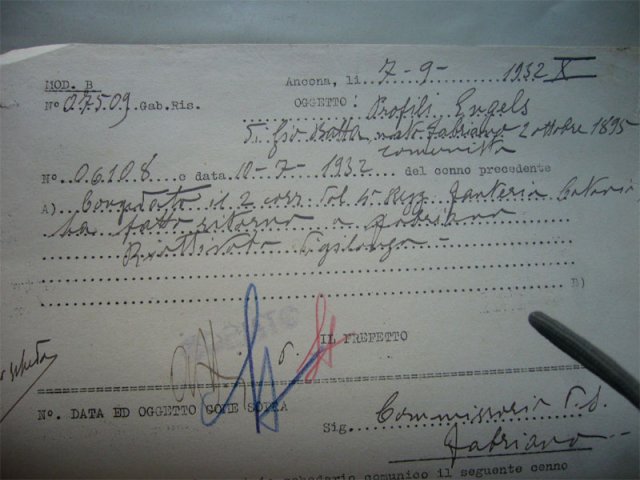 MOD. B
Ancona, li 7-9- 1932 X
N° 07509. Gab. Ris.
OGGETTO: Profili Engels
di Gio Batta, nato Fabriano 2 ottobre 1895
comunista
N° 06108 e data 10-7-1932 del cenno precedente
A) Congedato il 2 corr. dal Regg. Fanteria
ha fatto ritorno a Fabriano
Riattivata Vigilanza -
B)
IL PREFETTO
N°. DATA ED OGGETTO COME SOPRA
Sig. Commissario P.S.
Fabriano
schedario comunico il seguente cenno